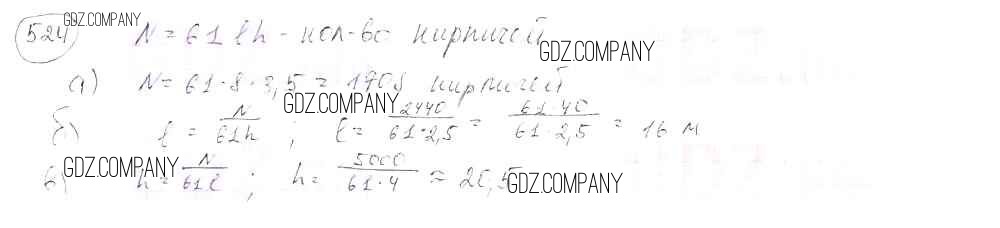 524 GDZ.COMPANY N = 61 ℓh - кол-во кирпичей GDZ.COMPANY
а) N = 61 · 8 · 3,5 = 1708 кирпичей
б) ℓ = N/61h ; GDZ.COMPANY ℓ = 2440/61·2,5 = 61·40/61·2,5 = 16 м
в) GDZ.COMPANY h = N/61ℓ ; h = 5000/61·4 ≈ 20,5 GDZ.COMPANY